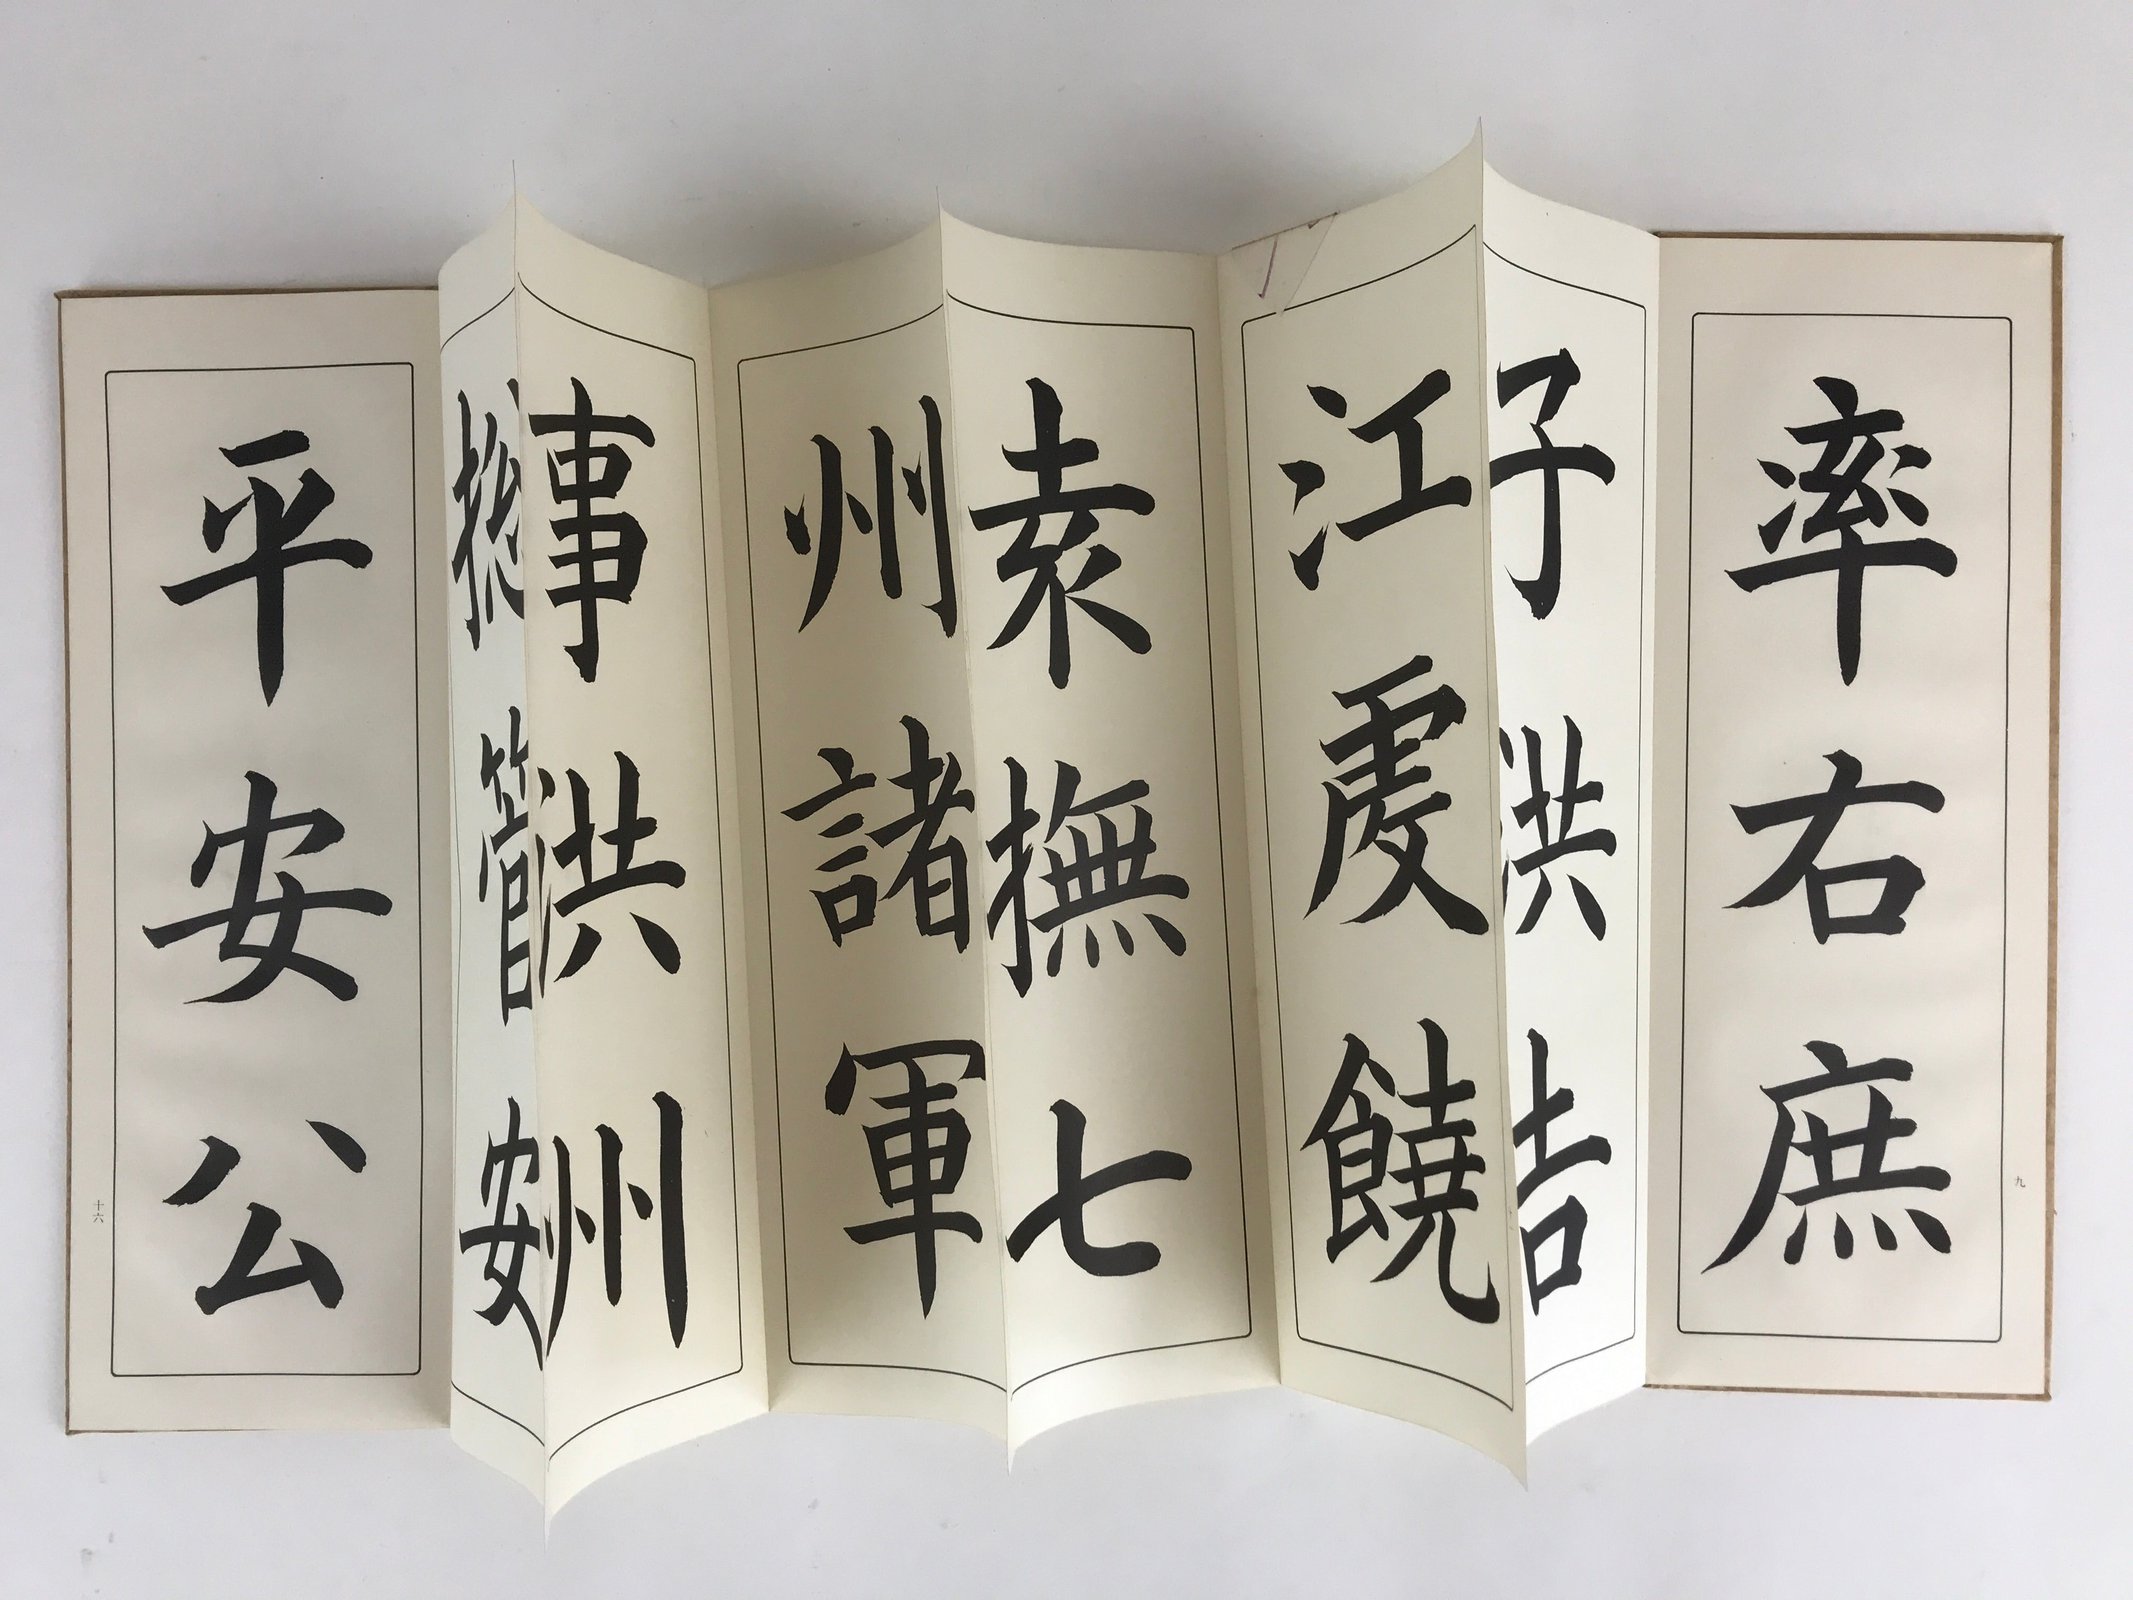 率右庶
九
子洪吉
江虔饒
袁撫七
州諸軍
事洪州
揔管安
平安公
十六